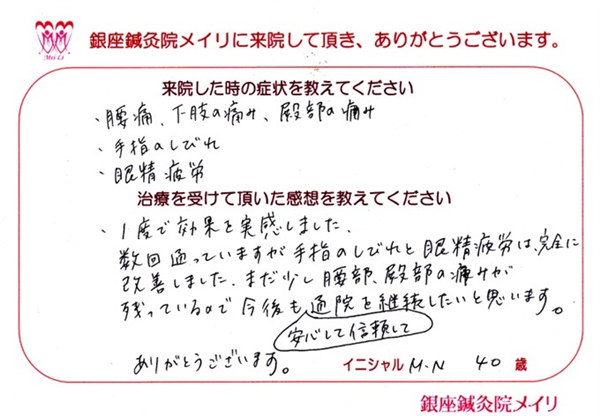 Mei Li
銀座鍼灸院メイリに来院して頂き、ありがとうございます。
来院した時の症状を教えてください
・腰痛、下肢の痛み、殿部の痛み
・手指のしびれ
・眼精疲労
治療を受けて頂いた感想を教えてください
・1度で効果を実感しました。
数回通っていますが手指のしびれと眼精疲労は、完全に
改善しました。まだ少し腰部、殿部の痛みが
残っているので今後も通院を継続したいと思います。
安心して信頼して
ありがとうございます。
イニシャル M.N 40 歳
銀座鍼灸院メイリ